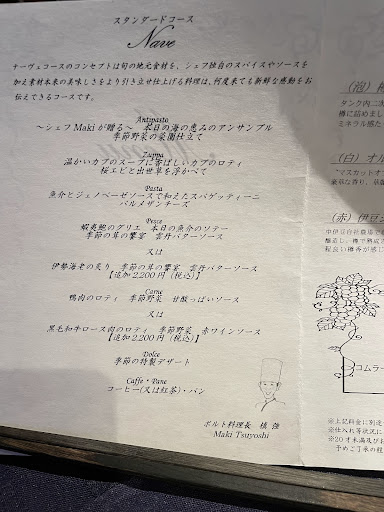 スタンダードコース
Nave
ナーヴェコースのコンセプトは旬の地元食材を、シェフ独自のスパイスやソースを
加え素材本来の美味しさをより引き立せ仕上げる料理は、何度来ても新鮮な感動をお
伝えできるコースです。
Antipasto
～シェフMakiが贈る～ 本日の海の恵みのアンサンブル
季節野菜の菜園仕立て
Zuppa
温かいカブのスープに香ばしいカブのロティ
桜エビと出世草を浮かべて
Pasta
魚介とジェノベーゼソースで和えたスパゲッティーニ
パルメザンチーズ
Pesce
蝦夷鮑のグリエ 本日の魚介のソテー
季節の茸の饗宴 雲丹バターソース
又は
伊勢海老の炙り 季節の茸の饗宴 雲丹バターソース
【追加2,200円(税込)】
Carne
鴨肉のロティ 季節野菜 甘酸っぱいソース
又は
黒毛和牛ロース肉のロティ 季節野菜 赤ワインソース
【追加2,200円(税込)】
Dolce
季節の特製デザート
Caffe・Pane
コーヒー(又は紅茶)・パン
ポルト料理長 槙 強
Maki Tsuyoshi
(泡)
タンク内二次
樽に詰めまし
ミネラル感た
(白) オル
"マスカットオ
豪華な香り、
(赤) 伊豆
中伊豆自社農場で
醸造し、樽で熟成
程良い樽香が感じ
コムラー
※上記料金に別途
※仕入れ等状況に
※20才未満及びお
予めご了承の程